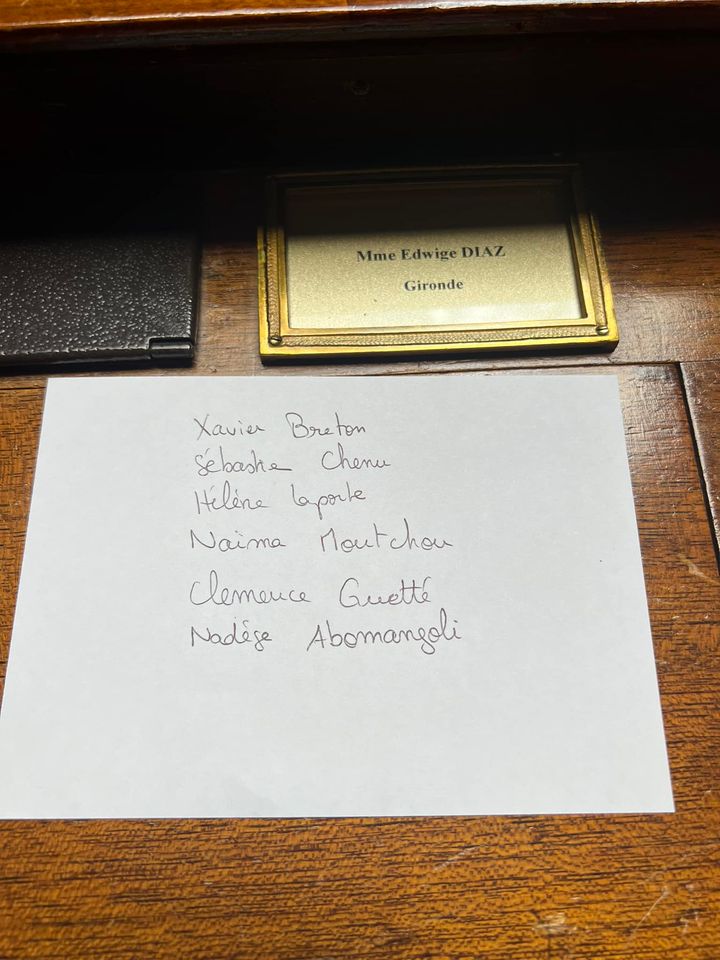 Mme Edwige DIAZ
Gironde
Xavier Breton
Sébastie Chenu
Hélène Laporte
Naïma Moutchou
Clemence Guetté
Nadège Abomangoli